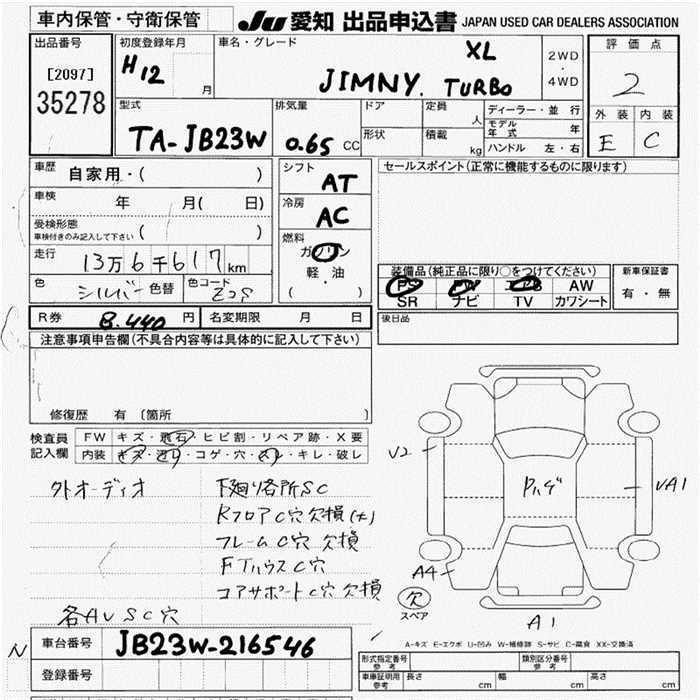 車内保管・守衛保管
JU 愛知 出品申込書 JAPAN USED CAR DEALERS ASSOCIATION
出品番号
[2097]
35278
初度登録年月
H12 月
車名・グレード
XL
JIMNY. TURBO
2WD
・
4WD
評価点
2
外装 内装
E C
型式
TA-JB23W
排気量
0.65 CC
ドア
形状
定員
人
積載
kg
ディーラー・並行
モデル年式 年
ハンドル 左・右
車歴
自家用・( )
車検
年 月( 日)
受検形態
車検付きのみ記入して下さい ( )
走行
13万6千617km
色
シルバー 色替
色コード
Z2S
シフト
AT
冷房
AC
燃料
ガソリン
軽・油
( ・ )
セールスポイント(正常に機能するものに限ります)
装備品(純正品に限り○をつけてください)
PS PW エアB AW
SR ナビ TV カワシート
新車保証書
有・無
R券 8.440 円
名変期限 月 日
後日品
注意事項申告欄(不具合内容等は具体的に記入して下さい)
修復歴 有〔箇所 〕
検査員記入欄
FW キズ・飛石・ヒビ割・リペア跡・X要
内装 キズ・汚れ・コゲ・穴・スレ・キレ・破レ
外オーディオ
下廻り各所SC
RフロアC穴欠損(大)
フレームC穴 欠損
FTハウスC穴
コアサポートC穴 欠損
各AV SC穴
V2
Pハゲ
VA1
A4
欠
スペア
A1
A-キズ E-エクボ U-凹み W-補修跡 S-サビ C-腐食 XX-交換済
N
車台番号
JB23W-216546
登録番号
形式指定番号
参考
類別区分番号
参考
車庫証明用
参考
長さ cm
幅 cm
高さ cm